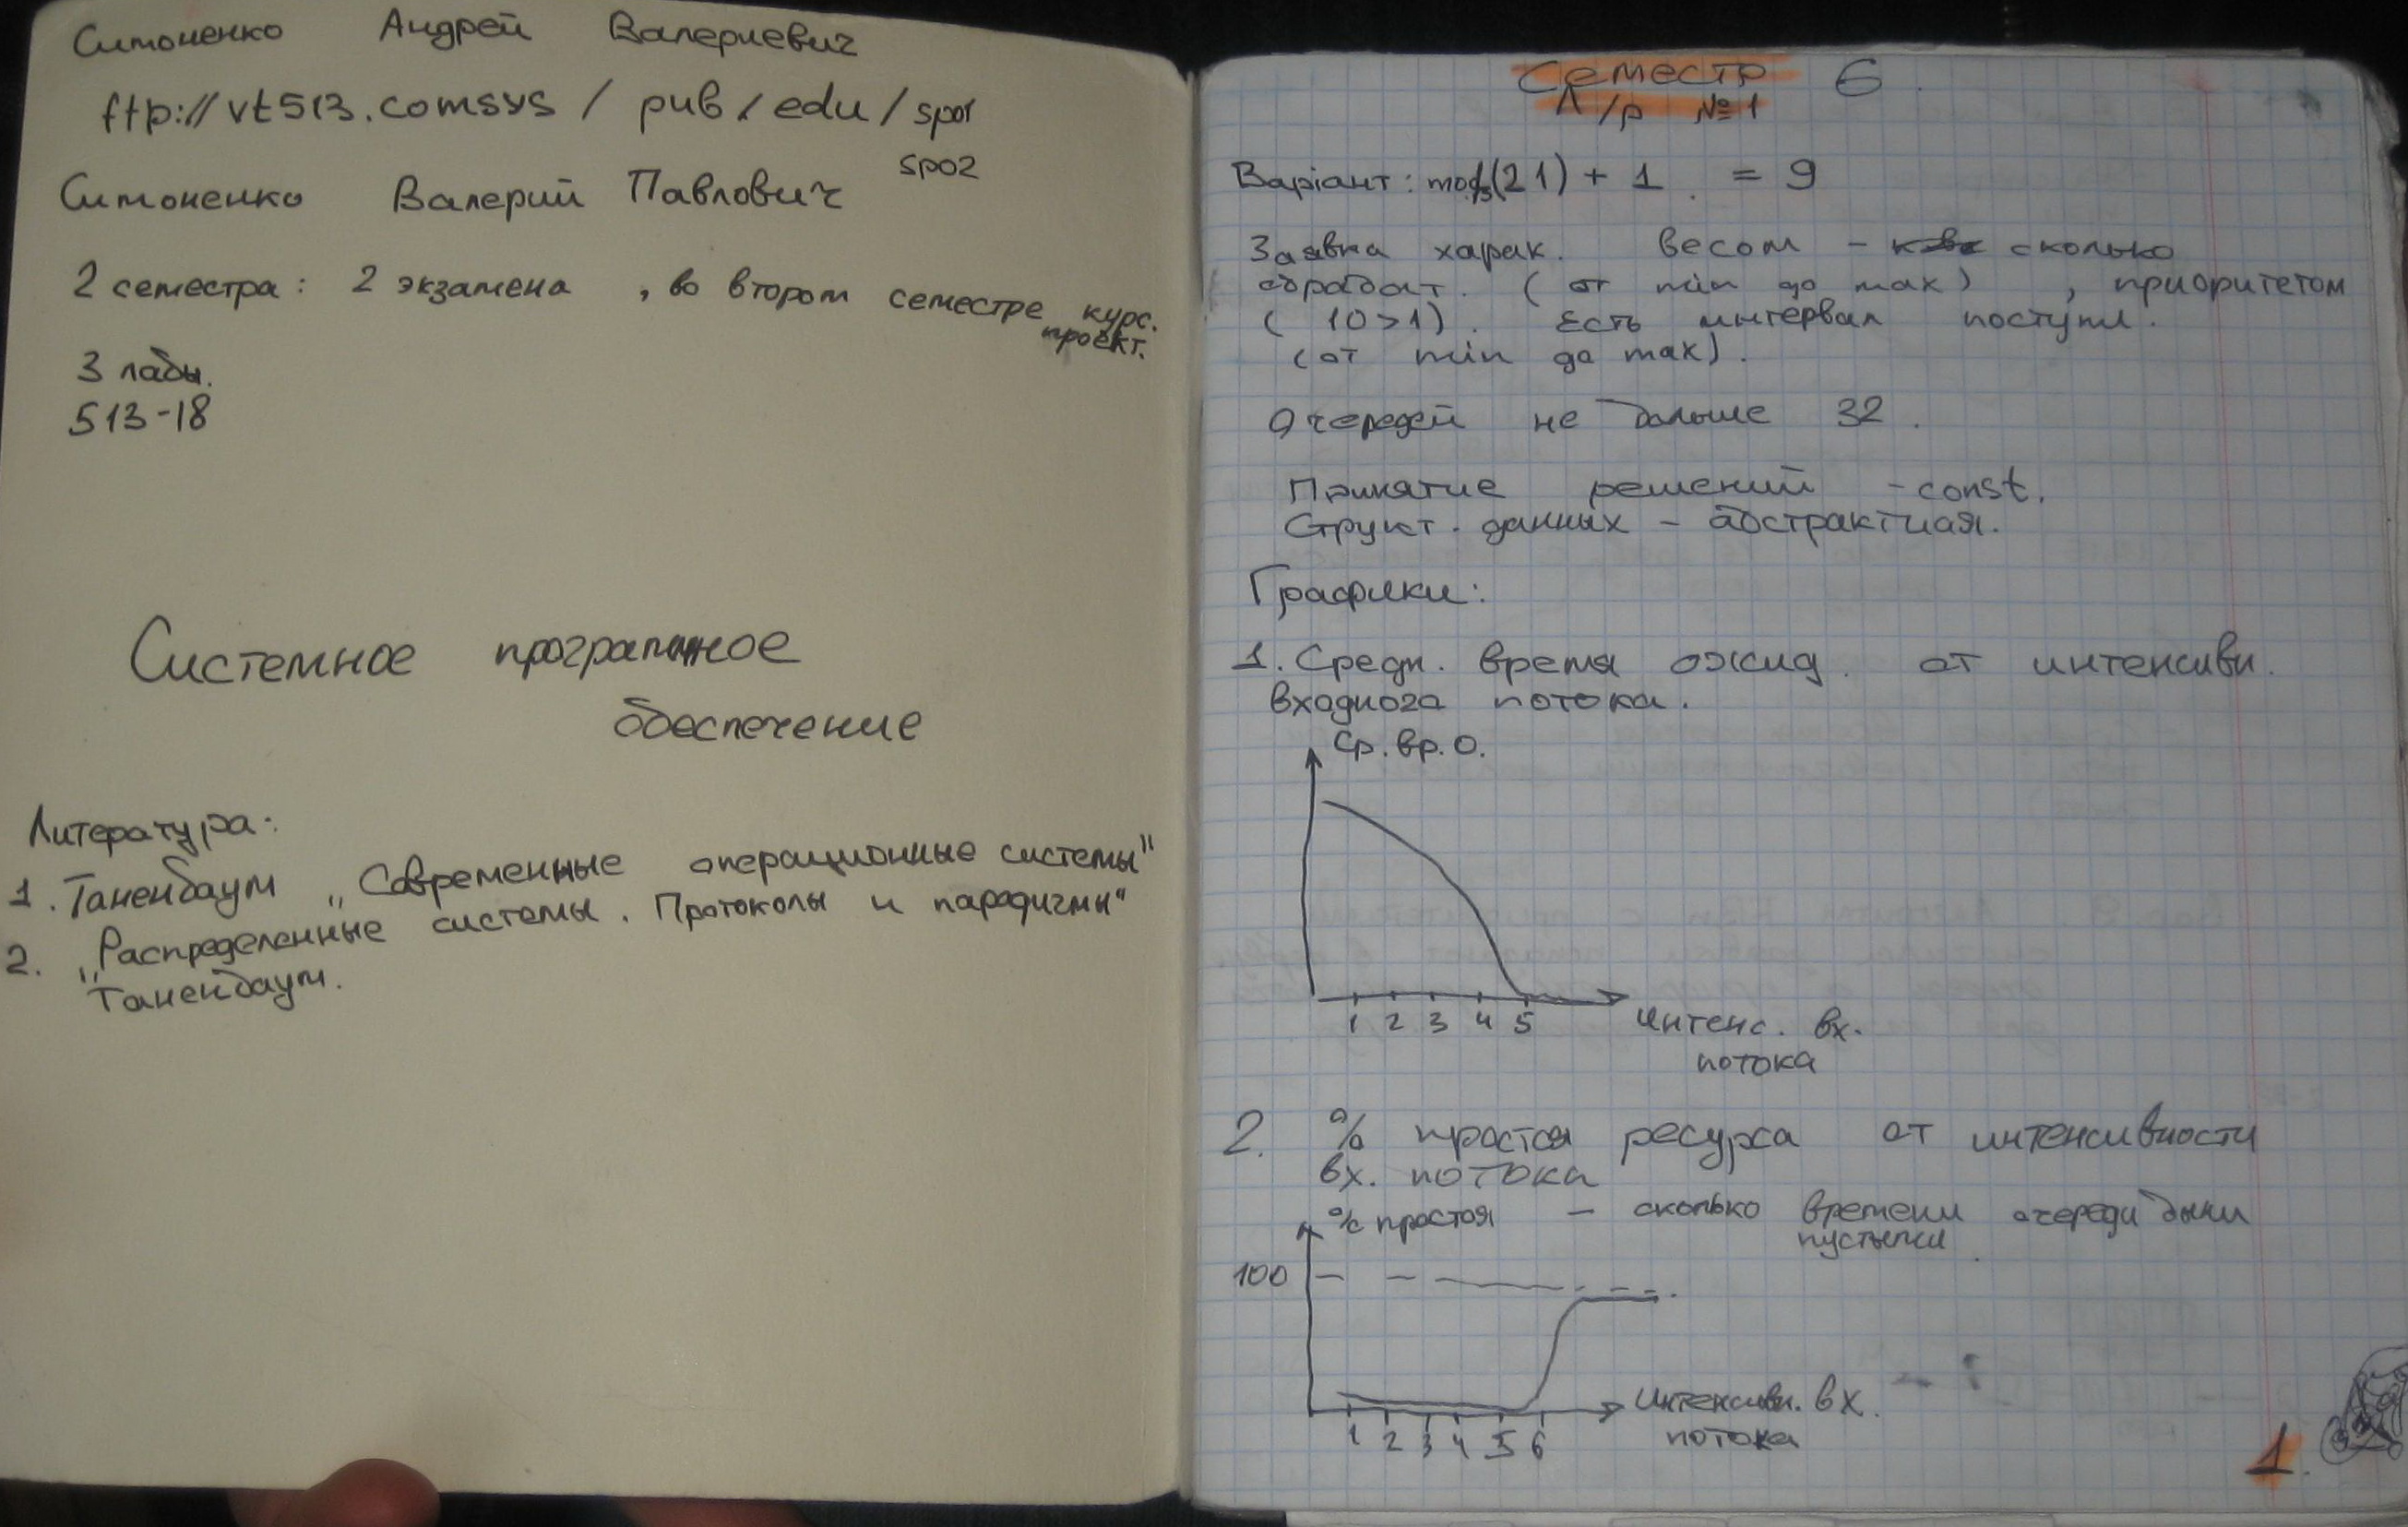 Симоненко Андрей Валериевич
ftp://vt513.comsys / pub / edu / spo1
spo2
Симоненко Валерий Павлович
2 семестра: 2 экзамена , во втором семестре курс.
проект.
3 лабы.
513-18
Системное програмное
обеспечение
Литература:
1. Таненбаум „Современные операционные системы"
2. „Распределенные системы. Протоколы и парадигмы"
Таненбаум.
Семестр 6
Л/р №1
Варіант: mod (21) + 1 = 9
Заявка харак. весом - сколько
обработ. (от min до max) , приоритетом
(10>1). Есть интервал поступл.
(от min до max).
Очередей не больше 32.
Принятие решений - const.
Структ. данных - абстрактная.
Графики:
1. Средн. время ожид. от интенсивн.
входного потока.
Ср. вр. О.
1 2 3 4 5
Интенс. вх.
потока
2. % простоя ресурса от интенсивности
вх. потока
% простоя - сколько времени очереди были
пустыми
100
Интенсивн. вх.
1 2 3 4 5 6
потока
1.